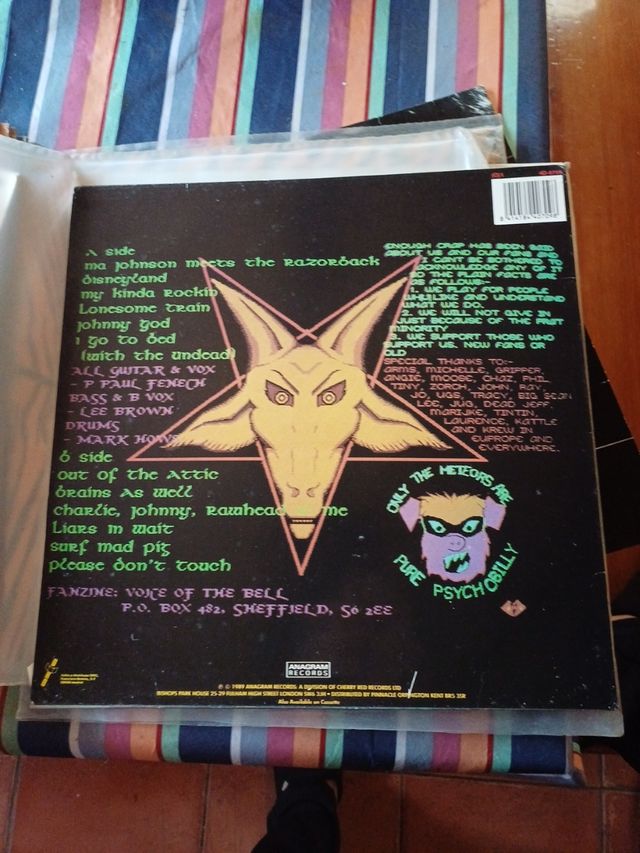 A side
ma johnson meets the razorback
disneyland
my kinda rockin
Lonesome train
johnny god
i go to bed
(with the undead)
ALL GUITAR & VOX
- P PAUL FENECH
BASS & B VOX
- LEE BROWN
DRUMS
- MARK HOWE
B side
out of the attic
brains as well
charlie, johnny, rawhead me
Liars in wait
surf mad pig
please don't touch
FANZINE: VOICE OF THE BELL
P.O. BOX 482, SHEFFIELD, S6 2EE
ENOUGH CRAP HAS BEEN SAID
ABOUT US AND OUR FANS AND
I CAN'T BE BOTHERED TO
ACKNOWLEDGE ANY OF IT
SO THE PLAIN FACTS ARE
AS FOLLOWS:-
1. WE PLAY FOR PEOPLE
WHO LIKE AND UNDERSTAND
WHAT WE DO.
2. WE WILL NOT GIVE IN
JUST BECAUSE OF THE
MINORITY
3. WE SUPPORT THOSE WHO
SUPPORT US. NEW FANS OR
OLD
SPECIAL THANKS TO:-
ARMS, MICHELLE, GRIPPER,
ANGIE, MOOSE, CHAZ, PHIL,
TINY, ZORCH, JOHN, RAY,
JO, UGS, TRACY, BIG SEAN
LEE, JUG, DEAD JEFF,
MARIJKE, TINTIN,
LAURENCE, KATTLE
AND KREW IN
EUFROPE AND
EVERYWHERE.
ONLY THE METEORS ARE
PURE PSYCHOBILLY
ANAGRAM
RECORDS
℗ © 1989 ANAGRAM RECORDS A DIVISION OF CHERRY RED RECORDS LTD
BISHOPS PARK HOUSE 25-29 FULHAM HIGH STREET LONDON SW6 3JH • DISTRIBUTED BY PINNACLE ORPINGTON KENT BR5 3SR
Also Available on Cassette